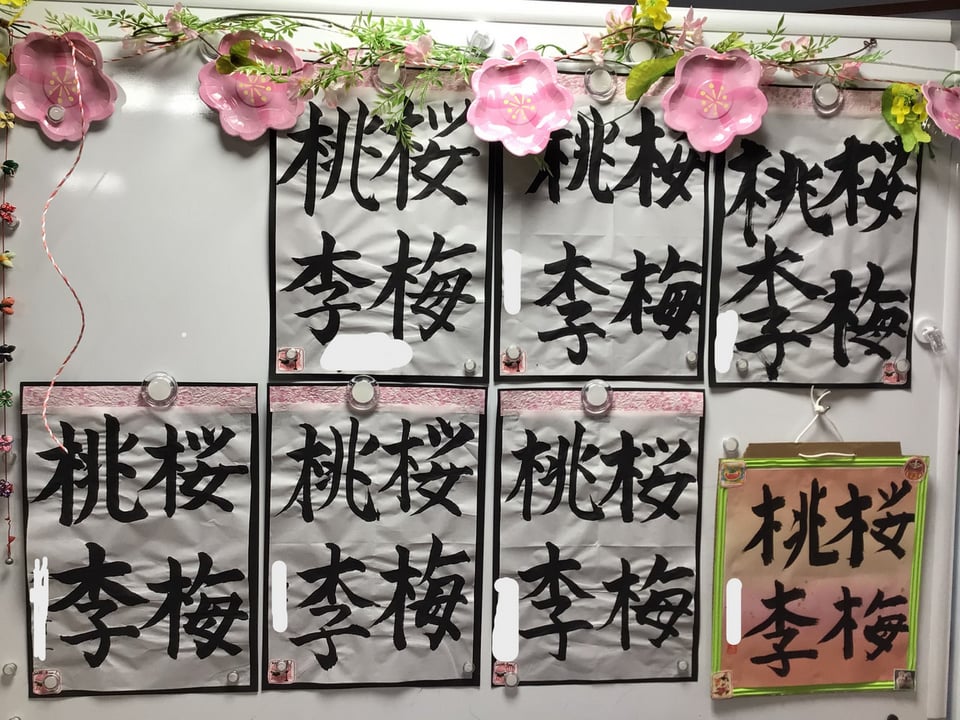 桜梅
桃李
桜梅
桃李
桜梅
桃李
桜梅
桃李
桜梅
桃李
桜梅
桃李
桜梅
桃李